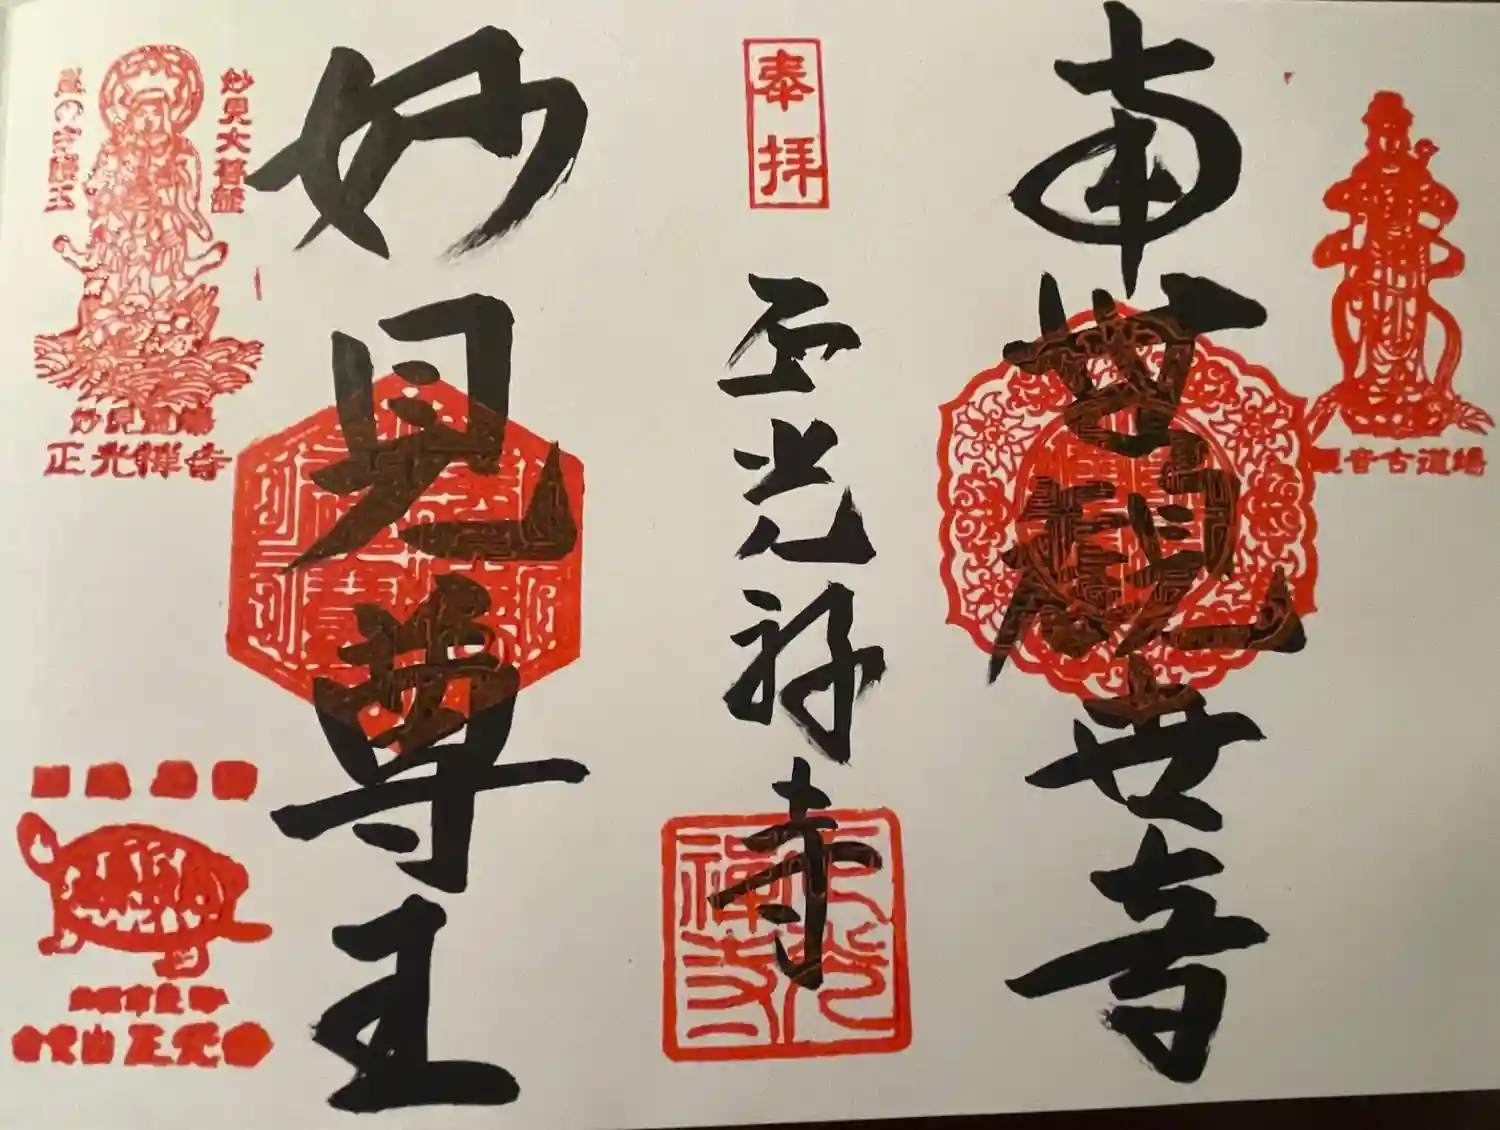 南無観世音
観音古道場
奉拝
正光禅寺
正光禅寺
妙見尊王
妙見大菩薩
妙見道場
正光禅寺